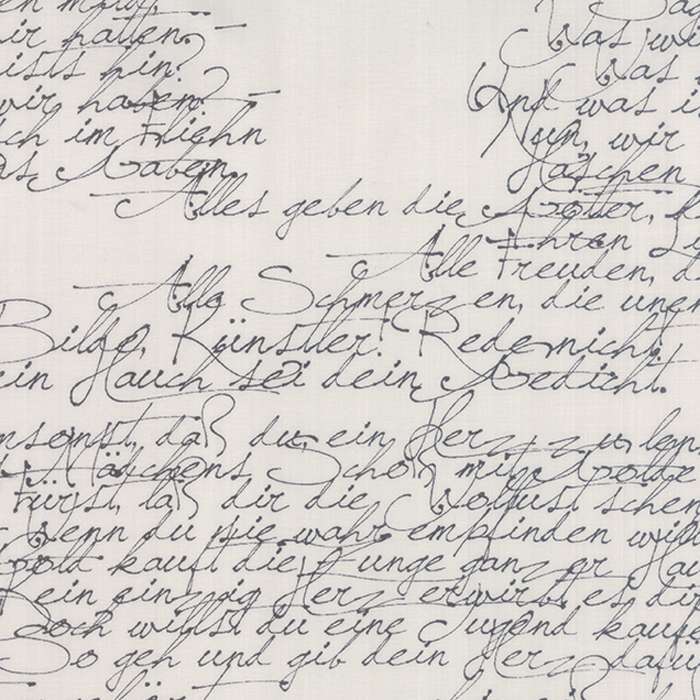 ir hatten. –
ists hin?
wir haben? –
ch im Fliehn
as Haben.
Was
Was
Und was i
Nun, wir
Haschen
Alles geben die Götter,
Ihren
Alle Freuden, d
Alle Schmerzen, die unen
Bilde, Künstler! Rede nicht!
ein Hauch sei dein Gedicht.
msonst, daß du, ein Herz zu len
Mädchens Schoß mit Golde
Fürst, laß dir die Wollust schen
Wenn du sie wahr empfinden will
Gold kauft die Zunge ganzer Hau
Kein einzig Herz erwirbt es dir
Doch willst du eine Tugend kauf
So geh und gib dein Herz dafür